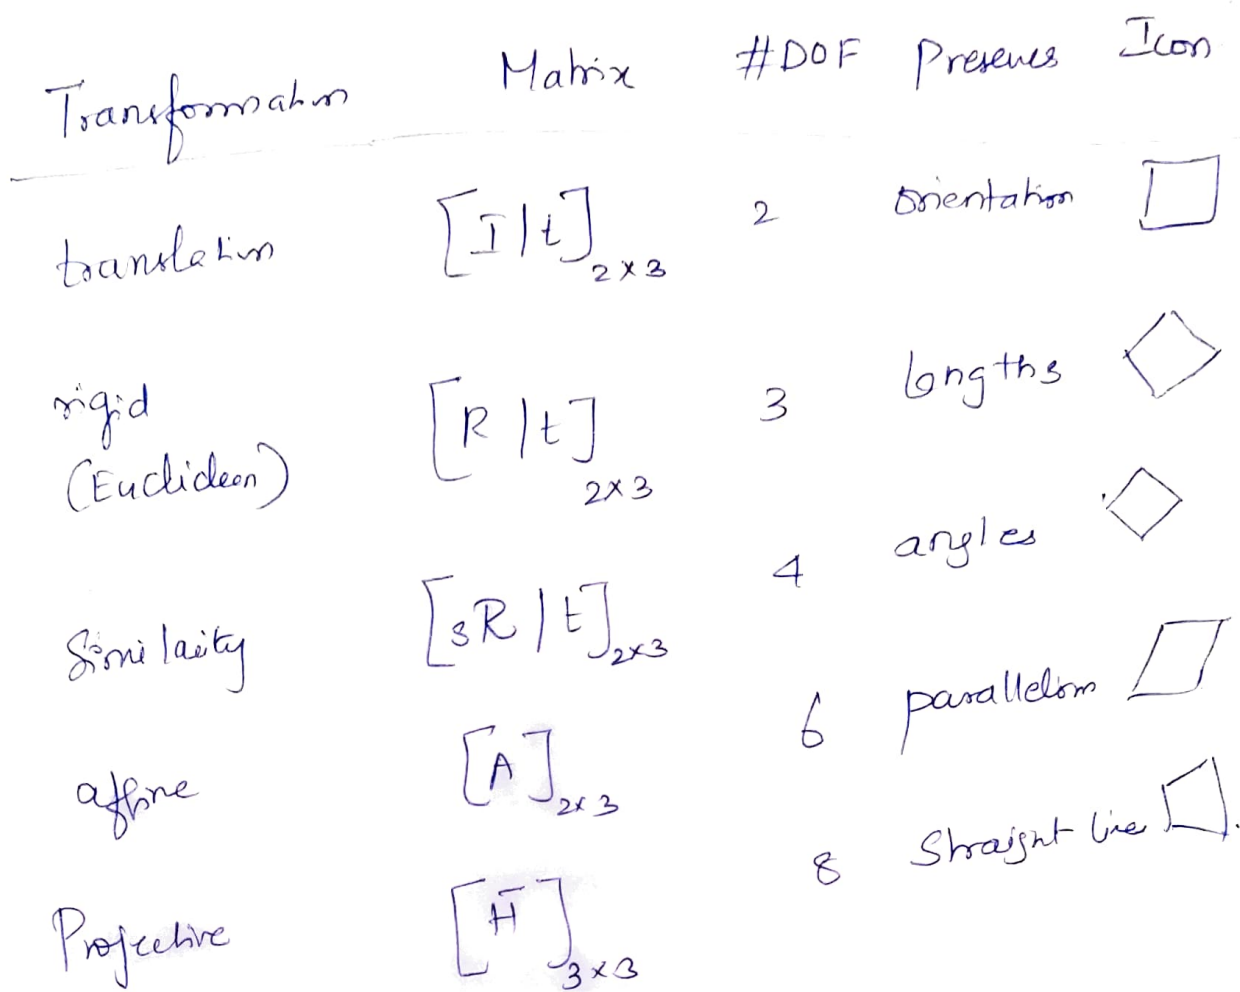 Transformation Matrix #DOF Preserves Icon
translation [I|t]2×3 2 Orientation
rigid [R|t]2×3 3 lengths
(Euclidean)
Similarity [sR|t]2×3 4 angles
affine [A]2×3 6 parallelism
Projective [H̄]3×3 8 Straight line